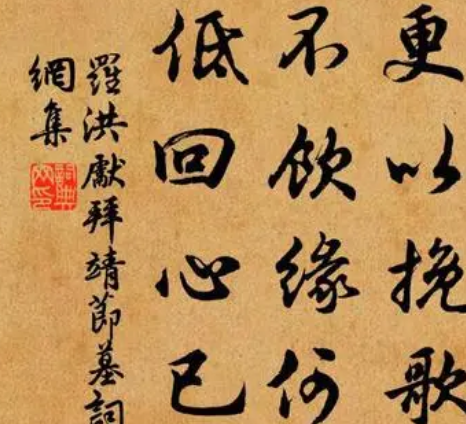 更以挽歌
不飲緣何
低回心已
羅洪獻拜靖節墓詞
網集